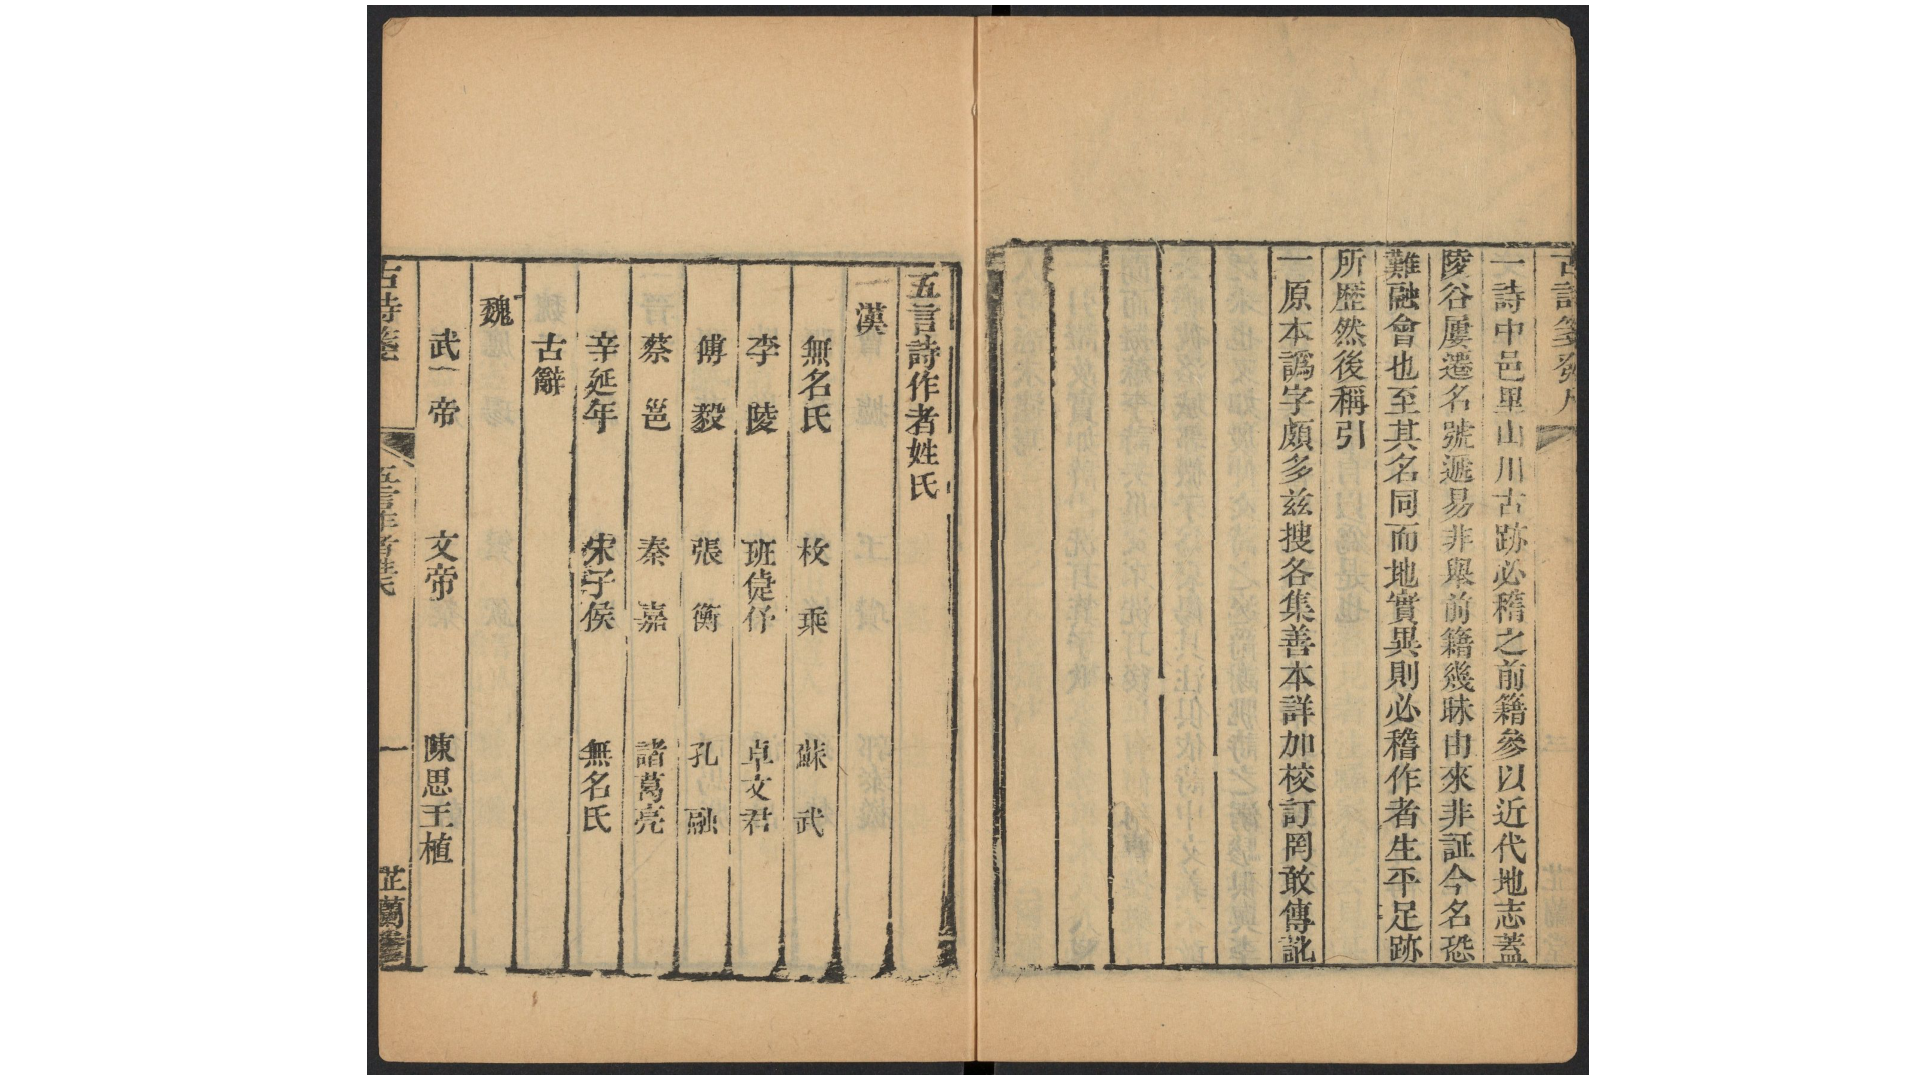 古詩箋發凡
一詩中邑里山川古跡必稽之前籍參以近代地志蓋
陵谷屢遷名號遞易非舉前籍幾昧由來非証今名恐
難融會也至其名同而地實異則必稽作者生平足跡
所歷然後稱引
一原本譌字頗多兹搜各集善本詳加校訂罔敢傳訛
五言詩作者姓氏
漢
無名氏 枚乘 蘇武
李陵 班倢伃 卓文君
傅毅 張衡 孔融
蔡邕 秦嘉 諸葛亮
辛延年 宋子侯 無名氏
古辭
魏
武帝 文帝 陳思王植
古詩箋 五言作者姓氏 一 芷蘭堂